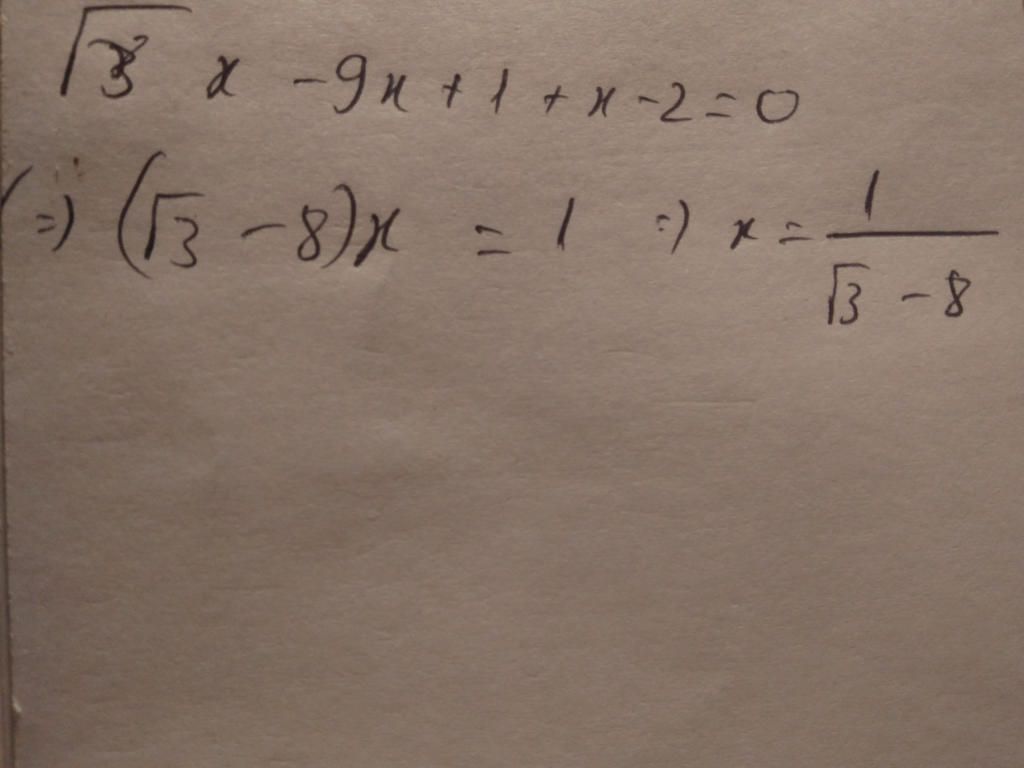 √3 x - 9x + 1 + x - 2 = 0
⇒ (√3 - 8)x = 1 ⇒ x = 1/(√3 - 8)